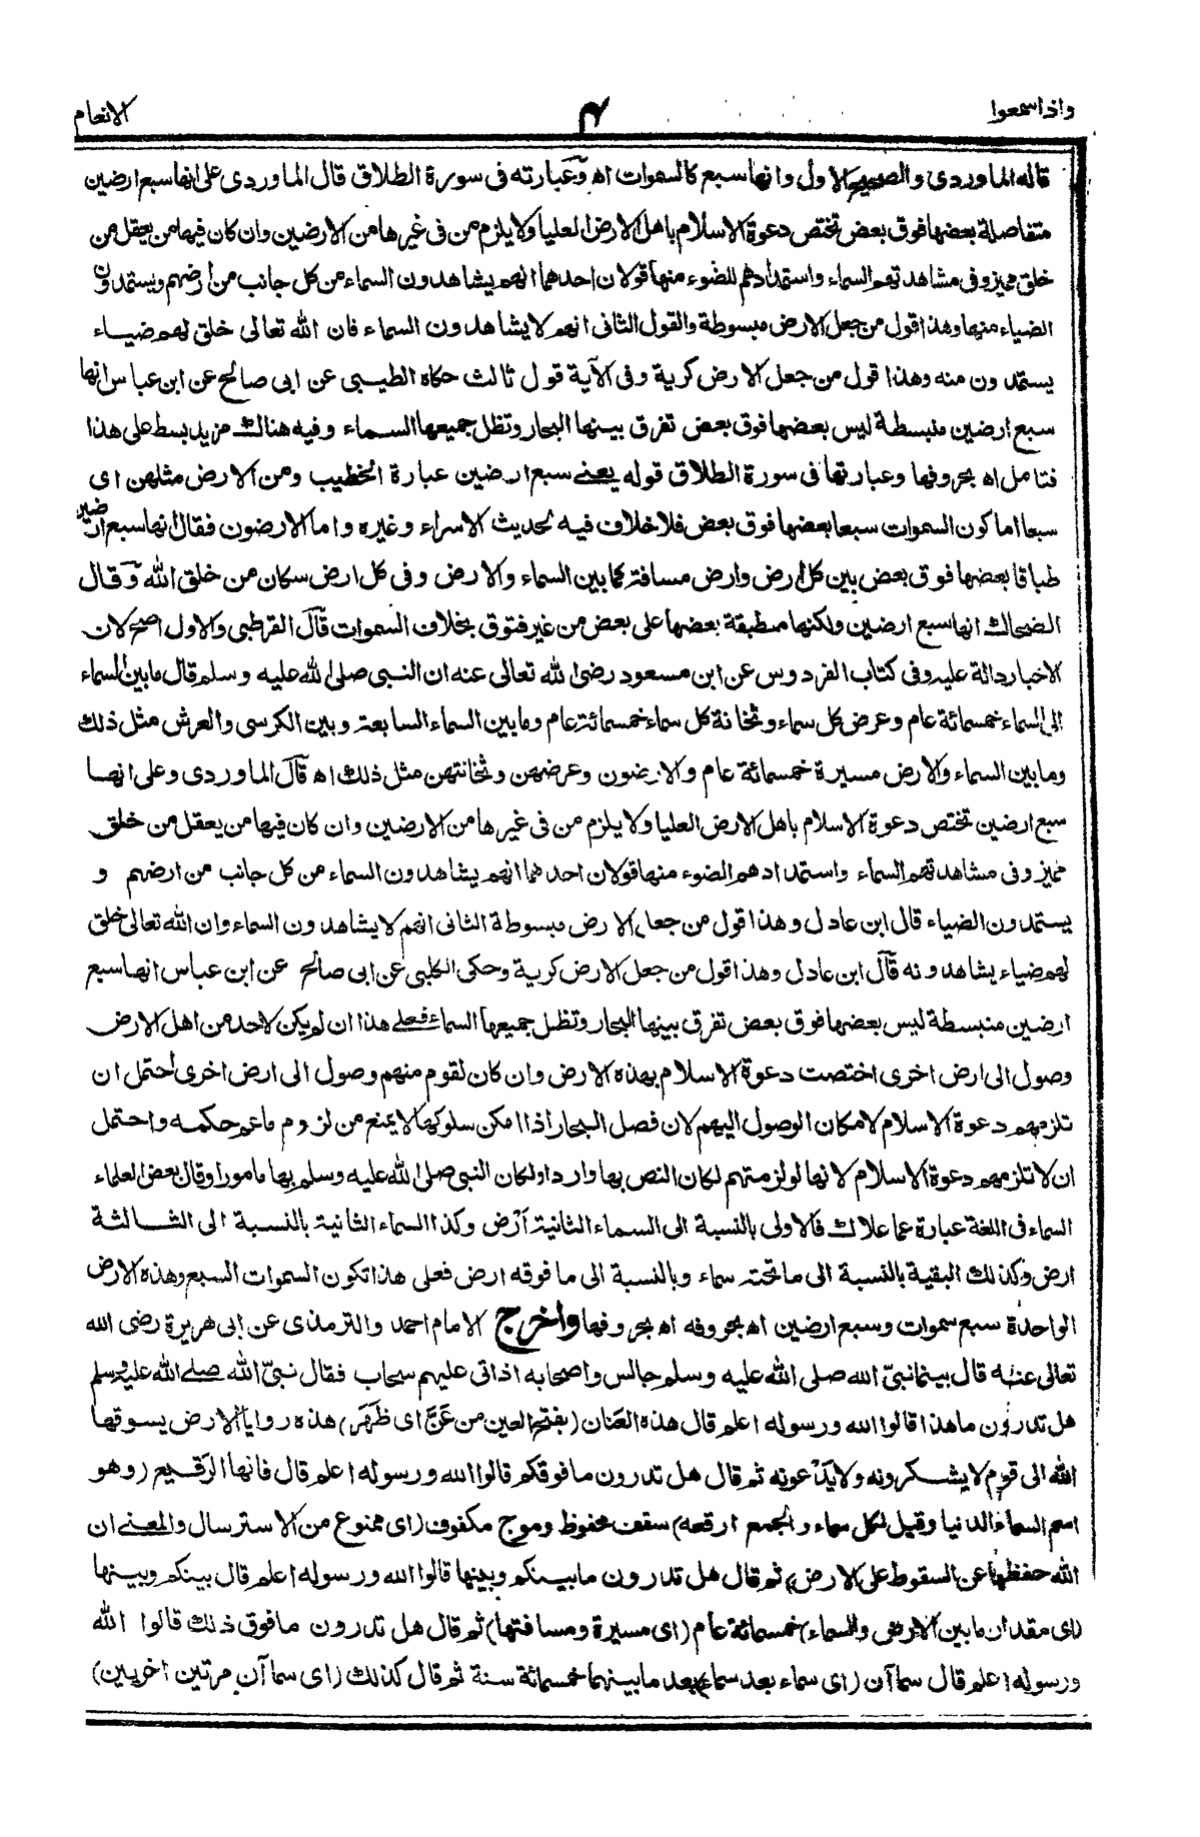 واذاسمعوا
٤
الانعام
قاله الماوردى والصحيح الاول وانها سبع كالسموات اه وعبارته فى سورة الطلاق قال الماوردى على انها سبع ارضين
متفاصلة بعضها فوق بعض تختص دعوة الاسلام باهل الارض العليا ولا يلزم من فى غيرها من الارضين وان كان فيها من يعقل من
خلق مميز وفى مشاهدتهم السماء واستمدادهم للضوء منها قولان احدهما انهم يشاهدون السماء من كل جانب من ارضهم ويستمدون
الضياء منها وهذا قول من جعل الارض مبسوطة والقول الثانى انهم لا يشاهدون السماء فان الله تعالى خلق لهم ضياء
يستمدون منه وهذا قول من جعل الارض كرية وفى الآية قول ثالث حكاه الطيبى عن ابى صالح عن ابن عباس انها
سبع ارضين منبسطة ليس بعضها فوق بعض تفرق بينها البحار وتظل جميعها السماء وفيه هناك مزيد بسط على هذا
فتامل اه بحروفها وعبارتها فى سورة الطلاق قوله يعنى سبع ارضين عبارة الخطيب ومن الارض مثلهن اى
سبعا اما كون السموات سبعا بعضها فوق بعض فلا خلاف فيه لحديث الاسراء وغيره واما الارضون فقال انها سبع ارضين
طباقا بعضها فوق بعض بين كل ارض وارض مسافة كما بين السماء والارض وفى كل ارض سكان من خلق الله وقال
الضحاك انها سبع ارضين ولكنها مطبقة بعضها على بعض من غير فتوق بخلاف السموات قال القرطبى والاول اصح لان
الاخبار دالة عليه وفى كتاب الفردوس عن ابن مسعود رضى الله تعالى عنه ان النبى صلى الله عليه وسلم قال ما بين السماء
الى السماء خمسمائة عام وعرض كل سماء وثخانة كل سماء خمسمائة عام وما بين السماء السابعة وبين الكرسى والعرش مثل ذلك
وما بين السماء والارض مسيرة خمسمائة عام والارضون وعرضهن وثخانتهن مثل ذلك اه قال الماوردى وعلى انها
سبع ارضين تختص دعوة الاسلام باهل الارض العليا ولا يلزم من فى غيرها من الارضين وان كان فيها من يعقل من خلق
مميز وفى مشاهدتهم السماء واستمدادهم الضوء منها قولان احدهما انهم يشاهدون السماء من كل جانب من ارضهم و
يستمدون الضياء قال ابن عادل وهذا قول من جعل الارض مبسوطة الثانى انهم لا يشاهدون السماء وان الله تعالى خلق
لهم ضياء يشاهدونه قال ابن عادل وهذا قول من جعل الارض كرية وحكى الكلبى عن ابى صالح عن ابن عباس انها سبع
ارضين منبسطة ليس بعضها فوق بعض تفرق بينها البحار وتظل جميعها السماء فعلى هذا ان لم يكن لاحد من اهل الارض
وصول الى ارض اخرى اختصت دعوة الاسلام بهذه الارض وان كان لقوم منهم وصول الى ارض اخرى احتمل ان
تلزمهم دعوة الاسلام لامكان الوصول اليهم لان فصل البحار اذا امكن سلوكها لا يمنع من لزوم ما عم حكمه واحتمل
ان لا تلزمهم دعوة الاسلام لانها لو لزمتهم لكان النص بها واردا ولكان النبى صلى الله عليه وسلم بها مامورا وقال بعض العلماء
السماء فى اللغة عبارة عما علاك فالاولى بالنسبة الى السماء الثانية ارض وكذا السماء الثانية بالنسبة الى الثالثة
ارض وكذلك البقية بالنسبة الى ما تحته سماء وبالنسبة الى ما فوقه ارض فعلى هذا تكون السموات السبع وهذه الارض
الواحدة سبع سموات وسبع ارضين اه بحروفه اه بحروفها واخرج الامام احمد والترمذى عن ابى هريرة رضى الله
تعالى عنه قال بينما نبىّ الله صلى الله عليه وسلم جالس واصحابه اذ اتى عليهم سحاب فقال نبىّ الله صلى الله عليه وسلم
هل تدرون ما هذا قالوا الله ورسوله اعلم قال هذه العَنان (بفتح العين من عَنَّ اى ظَهَرَ) هذه روايا الارض يسوقها
الله الى قوم لا يشكرونه ولا يَدْعونه ثم قال هل تدرون ما فوقكم قالوا الله ورسوله اعلم قال فانها الرَقيع (وهو
اسم السماء الدنيا وقيل لكل سماء والجمع ارقعه) سقف محفوظ وموج مكفوف (اى ممنوع من الاسترسال والمعنى ان
الله حفظها عن السقوط على الارض) ثم قال هل تدرون ما بينكم وبينها قالوا الله ورسوله اعلم قال بينكم وبينها
(اى مقدار ما بين الارض والسماء) خمسمائة عام (اى مسيرة ومسافتها) ثم قال هل تدرون ما فوق ذلك قالوا الله
ورسوله اعلم قال سماآن (اى سماء بعد سماء) بعد ما بينهما خمسمائة سنة ثم قال كذلك (اى سماآن مرتين اخريين)